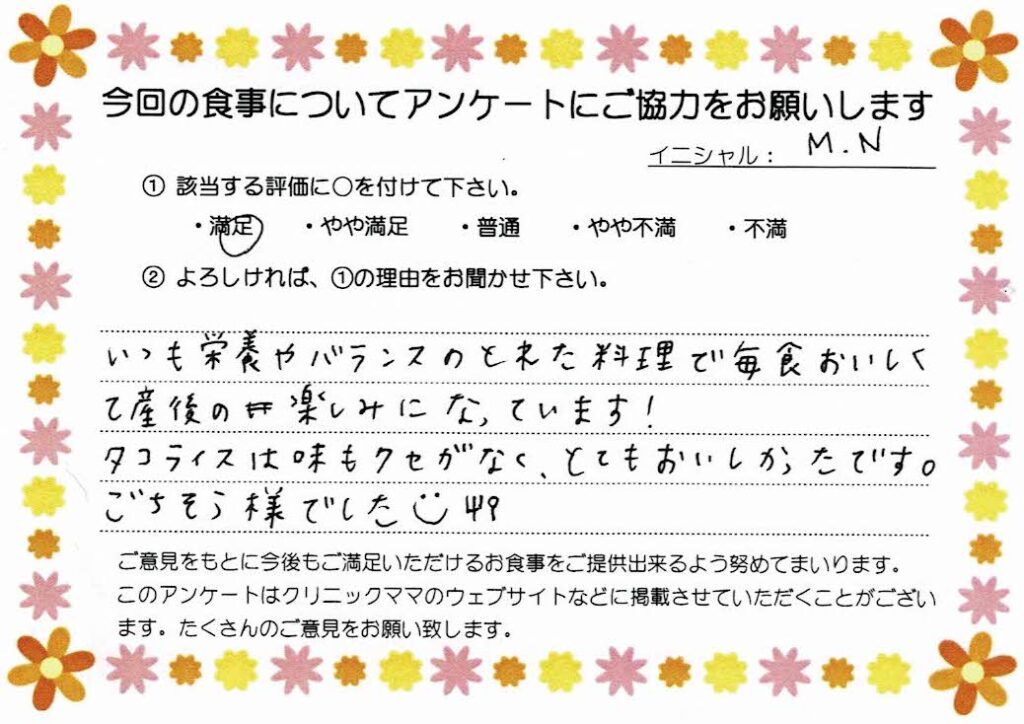 今回の食事についてアンケートにご協力をお願いします
イニシャル： M.N
① 該当する評価に〇を付けて下さい。
・満足 ・やや満足 ・普通 ・やや不満 ・不満
② よろしければ、①の理由をお聞かせ下さい。
いつも栄養やバランスのとれた料理で毎食おいしく
て産後の楽しみになっています！
タコライスは味もクセがなく、とてもおいしかったです。
ごちそう様でした
ご意見をもとに今後もご満足いただけるお食事をご提供出来るよう努めてまいります。
このアンケートはクリニックママのウェブサイトなどに掲載させていただくことがござい
ます。たくさんのご意見をお願い致します。